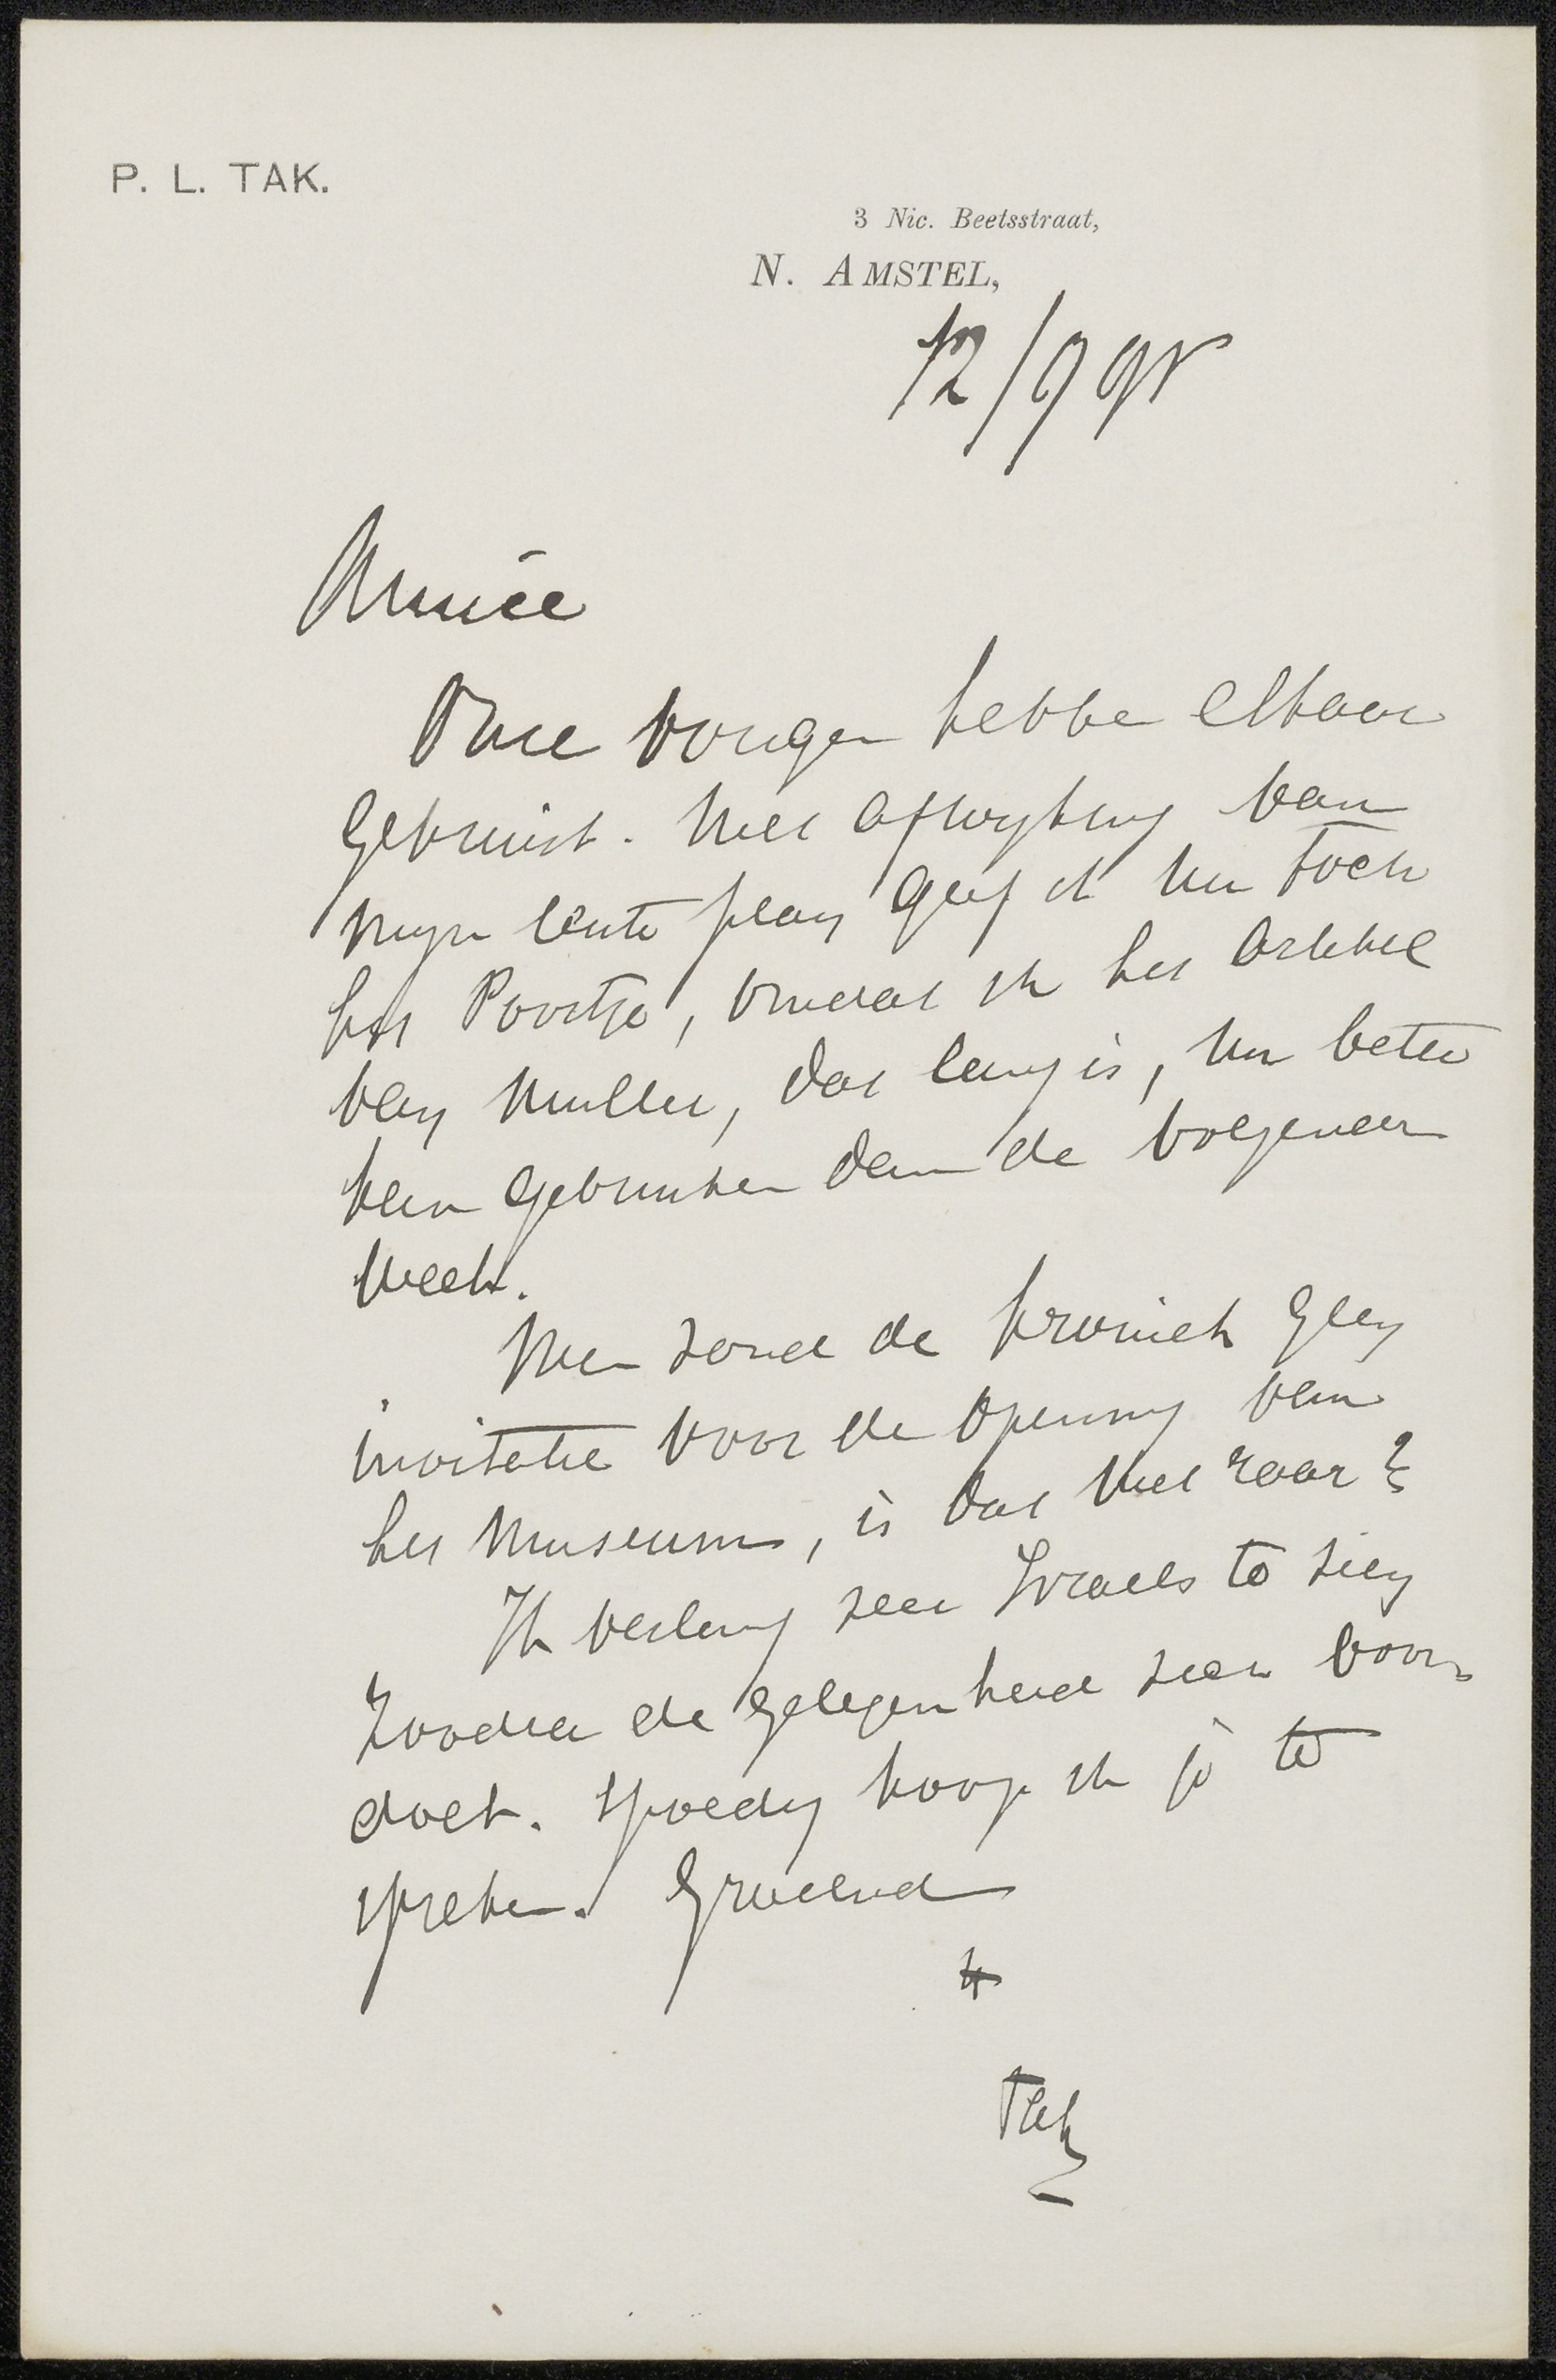 P. L. TAK.
3 Nic. Beetsstraat,
N. AMSTEL,
12/9 95
Amicé
Onze vorigen hebben elkaar
gekruist. Met afwyking van
myn eerste plan geef ik nu toch
het Poortje, omdat ik het artikel
van Muller, dat lang is, nu beter
kan gebruiken dan de volgende
week.
Men zond de Kroniek geen
invitatie voor de opening van
het Museum, is dat niet raar?
Ik verlang zeer Israels te zien
zoodra de gelegenheid zich voor-
doet. Spoedig hoop ik je te
spreken. Groetend
tt
Tak